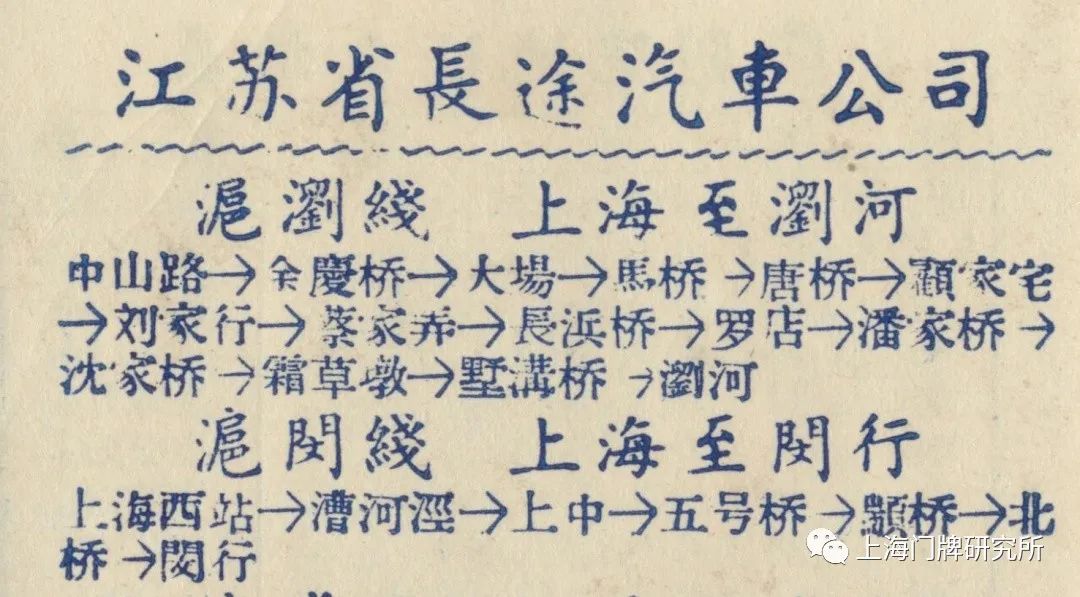 江苏省長途汽車公司
滬瀏綫 上海至瀏河
中山路→余慶桥→大場→馬桥→唐桥→顧家宅
→刘家行→蔡家弄→長浜桥→罗店→潘家桥→
沈家桥→霜草墩→墅溝桥→瀏河
滬閔綫 上海至閔行
上海西站→漕河涇→上中→五号桥→顓桥→北
桥→閔行
上海门牌研究所